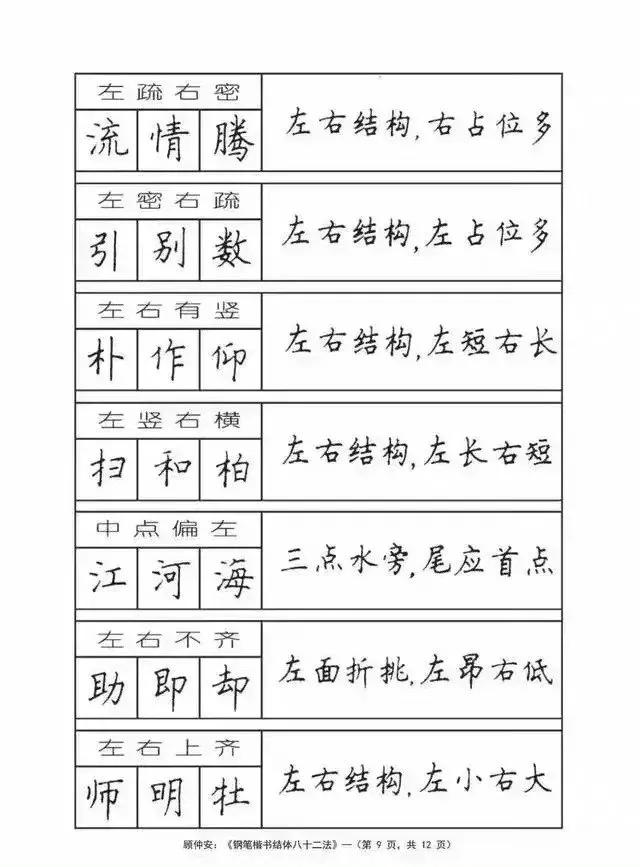 左疏右密
流情腾
左右结构,右占位多
左密右疏
引别数
左右结构,左占位多
左右有竖
朴作仰
左右结构,左短右长
左竖右横
扫和柏
左右结构,左长右短
中点偏左
江河海
三点水旁,尾应首点
左右不齐
助即却
左面折挑,左昂右低
左右上齐
师明牡
左右结构,左小右大
顾仲安:《钢笔楷书结体八十二法》—(第 9 页,共 12 页)